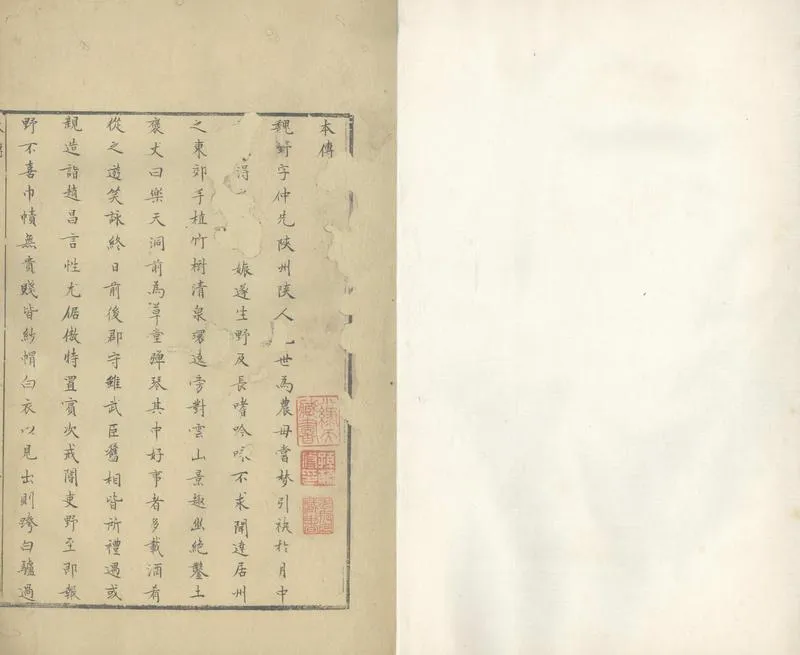 本傳
魏野字仲先陝州陝人世為農母嘗夢引袂於月中
得娠遂生野及長嗜吟咏不求聞達居州
之東郊手植竹樹清泉環遶旁對雲山景趣幽絕鑿土
袤丈曰樂天洞前為草堂彈琴其中好事者多載酒肴
從之遊笑詠終日前後郡守雖武臣舊相皆所禮遇或
親造詣趙昌言性尤倨傲特置賓次戒閽吏野至即報
野不喜巾幘無貴賤皆紗帽白衣以見出則跨白驢過
小綠天藏書